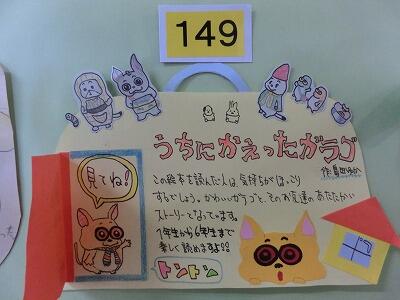 149
うちにかえったガラゴ
見てね!
この絵本を読んだ人は、気持ちがほっこり
するでしょう。かわいいガラゴと、そのお友達のあたたかい
ストーリーとなってます。
1年生から6年生まで
楽しく読めますよ!!
トントン